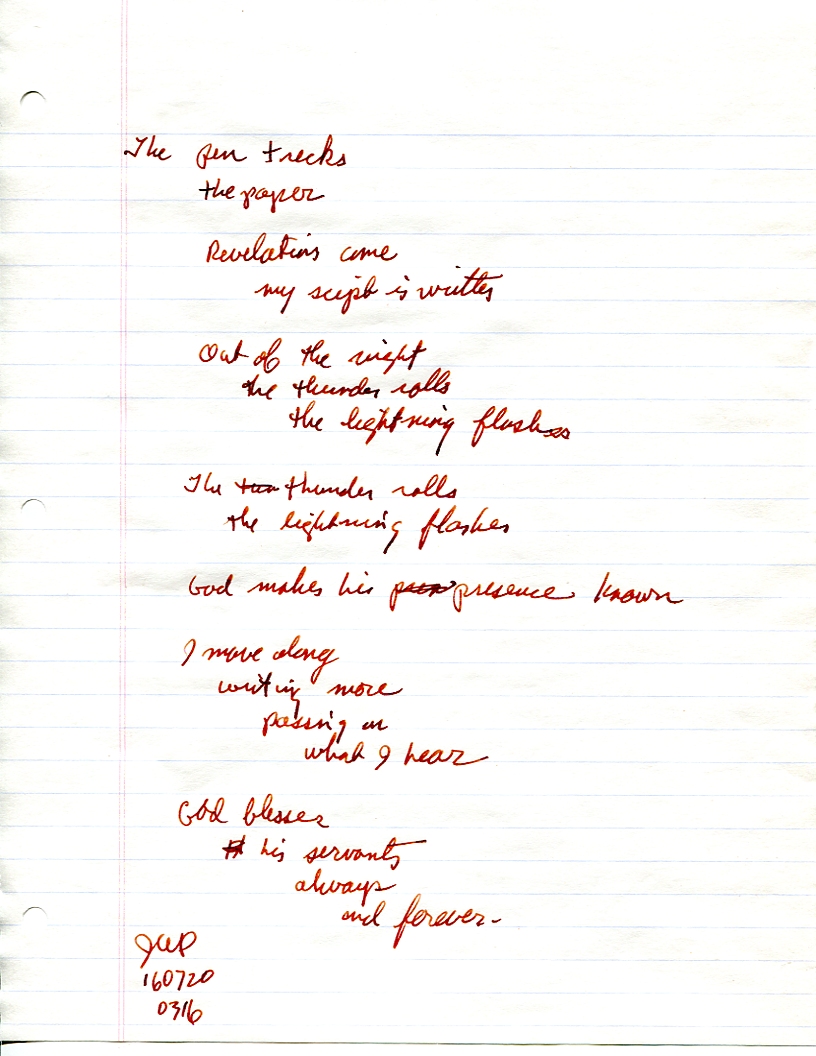 The pen trecks
the paper
Revelations come
my scipt is written
Out of the night
the thunder rolls
the lightning flashes
The thunder rolls
the lightning flashes
God makes his presence known
I move along
writing more
passing on
what I hear
God blesses
his servants
always
and forever-
JWP
160720
0316